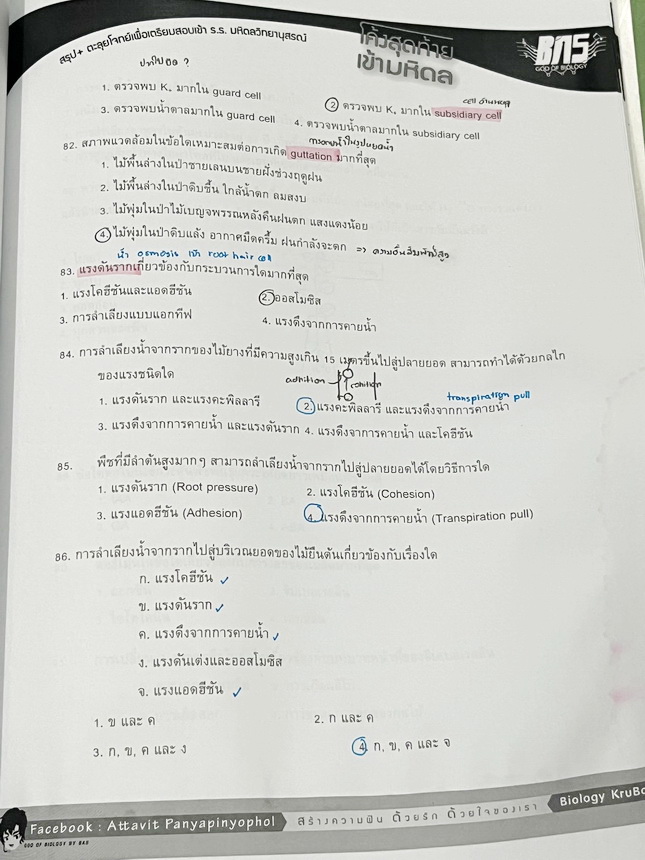 สรุป+ ตะลุยโจทย์เพื่อเตรียมสอบเข้า ร.ร. มหิดลวิทยานุสรณ์
โค้งสุดท้าย
เข้ามหิดล
BAS
GOD OF BIOLOGY
ปากใบปิด ?
1. ตรวจพบ K+ มากใน guard cell
2. ตรวจพบ K+ มากใน subsidiary cell
3. ตรวจพบน้ำตาลมากใน guard cell
4. ตรวจพบน้ำตาลมากใน subsidiary cell
82. สภาพแวดล้อมในข้อใดเหมาะสมต่อการเกิด guttation มากที่สุด
1. ไม้พื้นล่างในป่าชายเลนบนชายฝั่งช่วงฤดูฝน
2. ไม้พื้นล่างในป่าดิบชื้น ใกล้น้ำตก ลมสงบ
3. ไม้พุ่มในป่าไม้เบญจพรรณหลังคืนฝนตก แสงแดงน้อย
4. ไม้พุ่มในป่าดิบแล้ง อากาศมืดครึ้ม ฝนกำลังจะตก => ความชื้นสัมพัทธ์สูง
น้ำ osmosis เข้า root hair cell
83. แรงดันรากเกี่ยวข้องกับกระบวนการใดมากที่สุด
1. แรงโคฮีชันและแอดฮีชัน
2. ออสโมซิส
3. การลำเลียงแบบแอกทีฟ
4. แรงดึงจากการคายน้ำ
84. การลำเลียงน้ำจากรากของไม้ยางที่มีความสูงเกิน 15 เมตรขึ้นไปสู่ปลายยอด สามารถทำได้ด้วยกลไก
ของแรงชนิดใด
adhition
cohition
transpiration pull
1. แรงดันราก และแรงคะพิลลารี
2. แรงคะพิลลารี และแรงดึงจากการคายน้ำ
3. แรงดึงจากการคายน้ำ และแรงดันราก 4. แรงดึงจากการคายน้ำ และโคฮีชัน
85. พืชที่มีลำต้นสูงมากๆ สามารถลำเลียงน้ำจากรากไปสู่ปลายยอดได้โดยวิธีการใด
1. แรงดันราก (Root pressure)
2. แรงโคฮีชัน (Cohesion)
3. แรงแอดฮีชัน (Adhesion)
4. แรงดึงจากการคายน้ำ (Transpiration pull)
86. การลำเลียงน้ำจากรากไปสู่บริเวณยอดของไม้ยืนต้นเกี่ยวข้องกับเรื่องใด
ก. แรงโคฮีชัน ✓
ข. แรงดันราก ✓
ค. แรงดึงจากการคายน้ำ ✓
ง. แรงดันเต่งและออสโมซิส
จ. แรงแอดฮีชัน ✓
1. ข และ ค
2. ก และ ค
3. ก, ข, ค และ ง
4. ก, ข, ค และ จ
Facebook : Attavit Panyapinyophol
GOD OF BIOLOGY BY BAS
สร้างความฝัน ด้วยรัก ด้วยใจของเรา
Biology KruBa